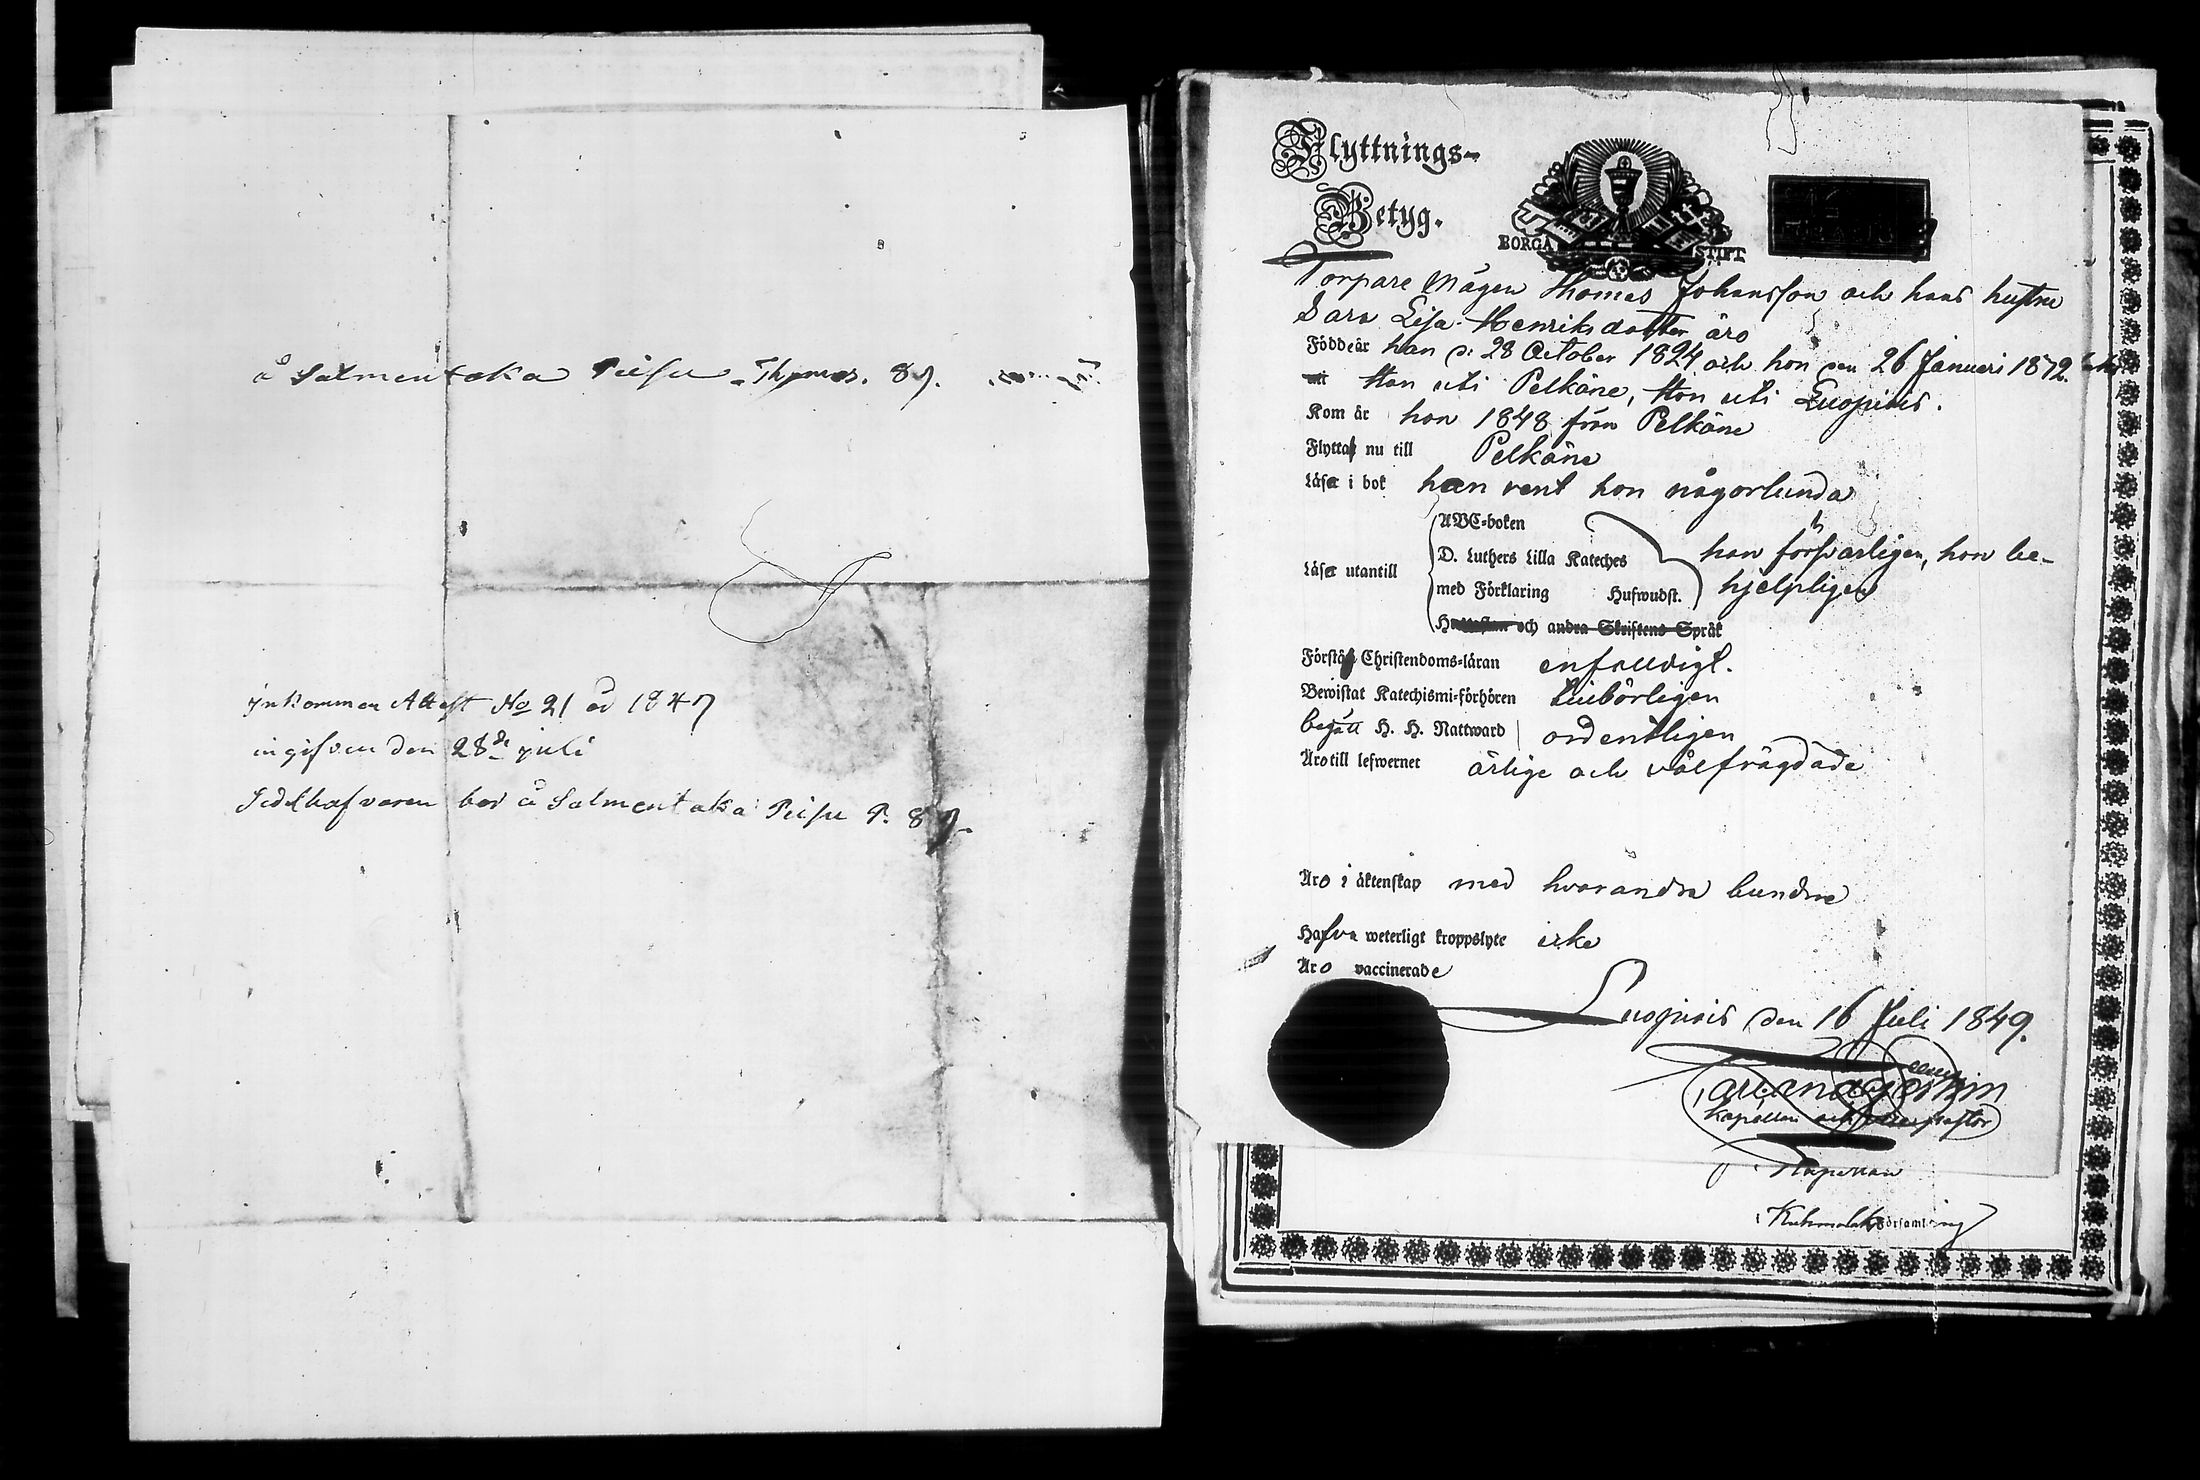 å Salmentaka Peisu Thomas. 87.
Inkommen Attest No 21 år 1847
ingifven den 28de juli
Sedelhafvaren bor å Salmentaka Peisu P. 87.
Flyttnings-
Betyg.
BORGÅ STIFT
Torpare Mågen Thomas Johansson och hans hustru
Sara Lisa Henriksdotter äro
Födde är han d. 28 October 1824 och hon den 26 Januari 1872.
Han uti Pelkäne, Hon uti Luopiois.
Kom år hon 1848 från Pelkäne
Flytta nu till Pelkäne
Läser i bok han rent hon någorlunda
ABC-boken
D. Luthers Lilla Kateches han försvarligen, hon be-
Läser utantill
med Förklaring Hufwudst. hjelpligen
och andra Skriftens Språk
Förstå Christendoms-läran enfaldigt.
Bewistat Katechismi-förhören tillbörligen
begått H. H. Nattward ordentligen
Äro till lefwernet ärlige och välfrägdade
Äro i äktenskap med hvarandra bundne
Hafva weterligt kroppslyte icke
Äro vaccinerade
Luopiois den 16 Juli 1849.
Kapellan
Kuhmalaks Församling